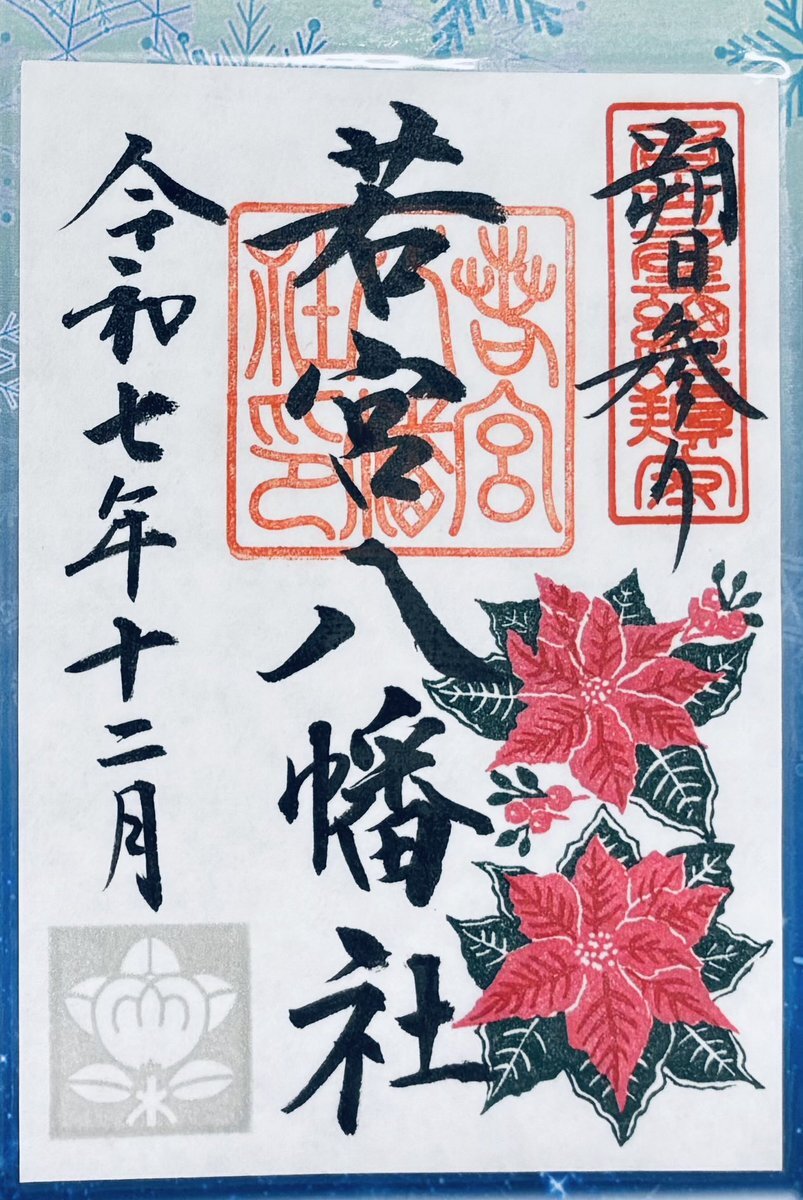 朔日参り
若宮八幡社
若宮
八幡
社印
令和七年十二月